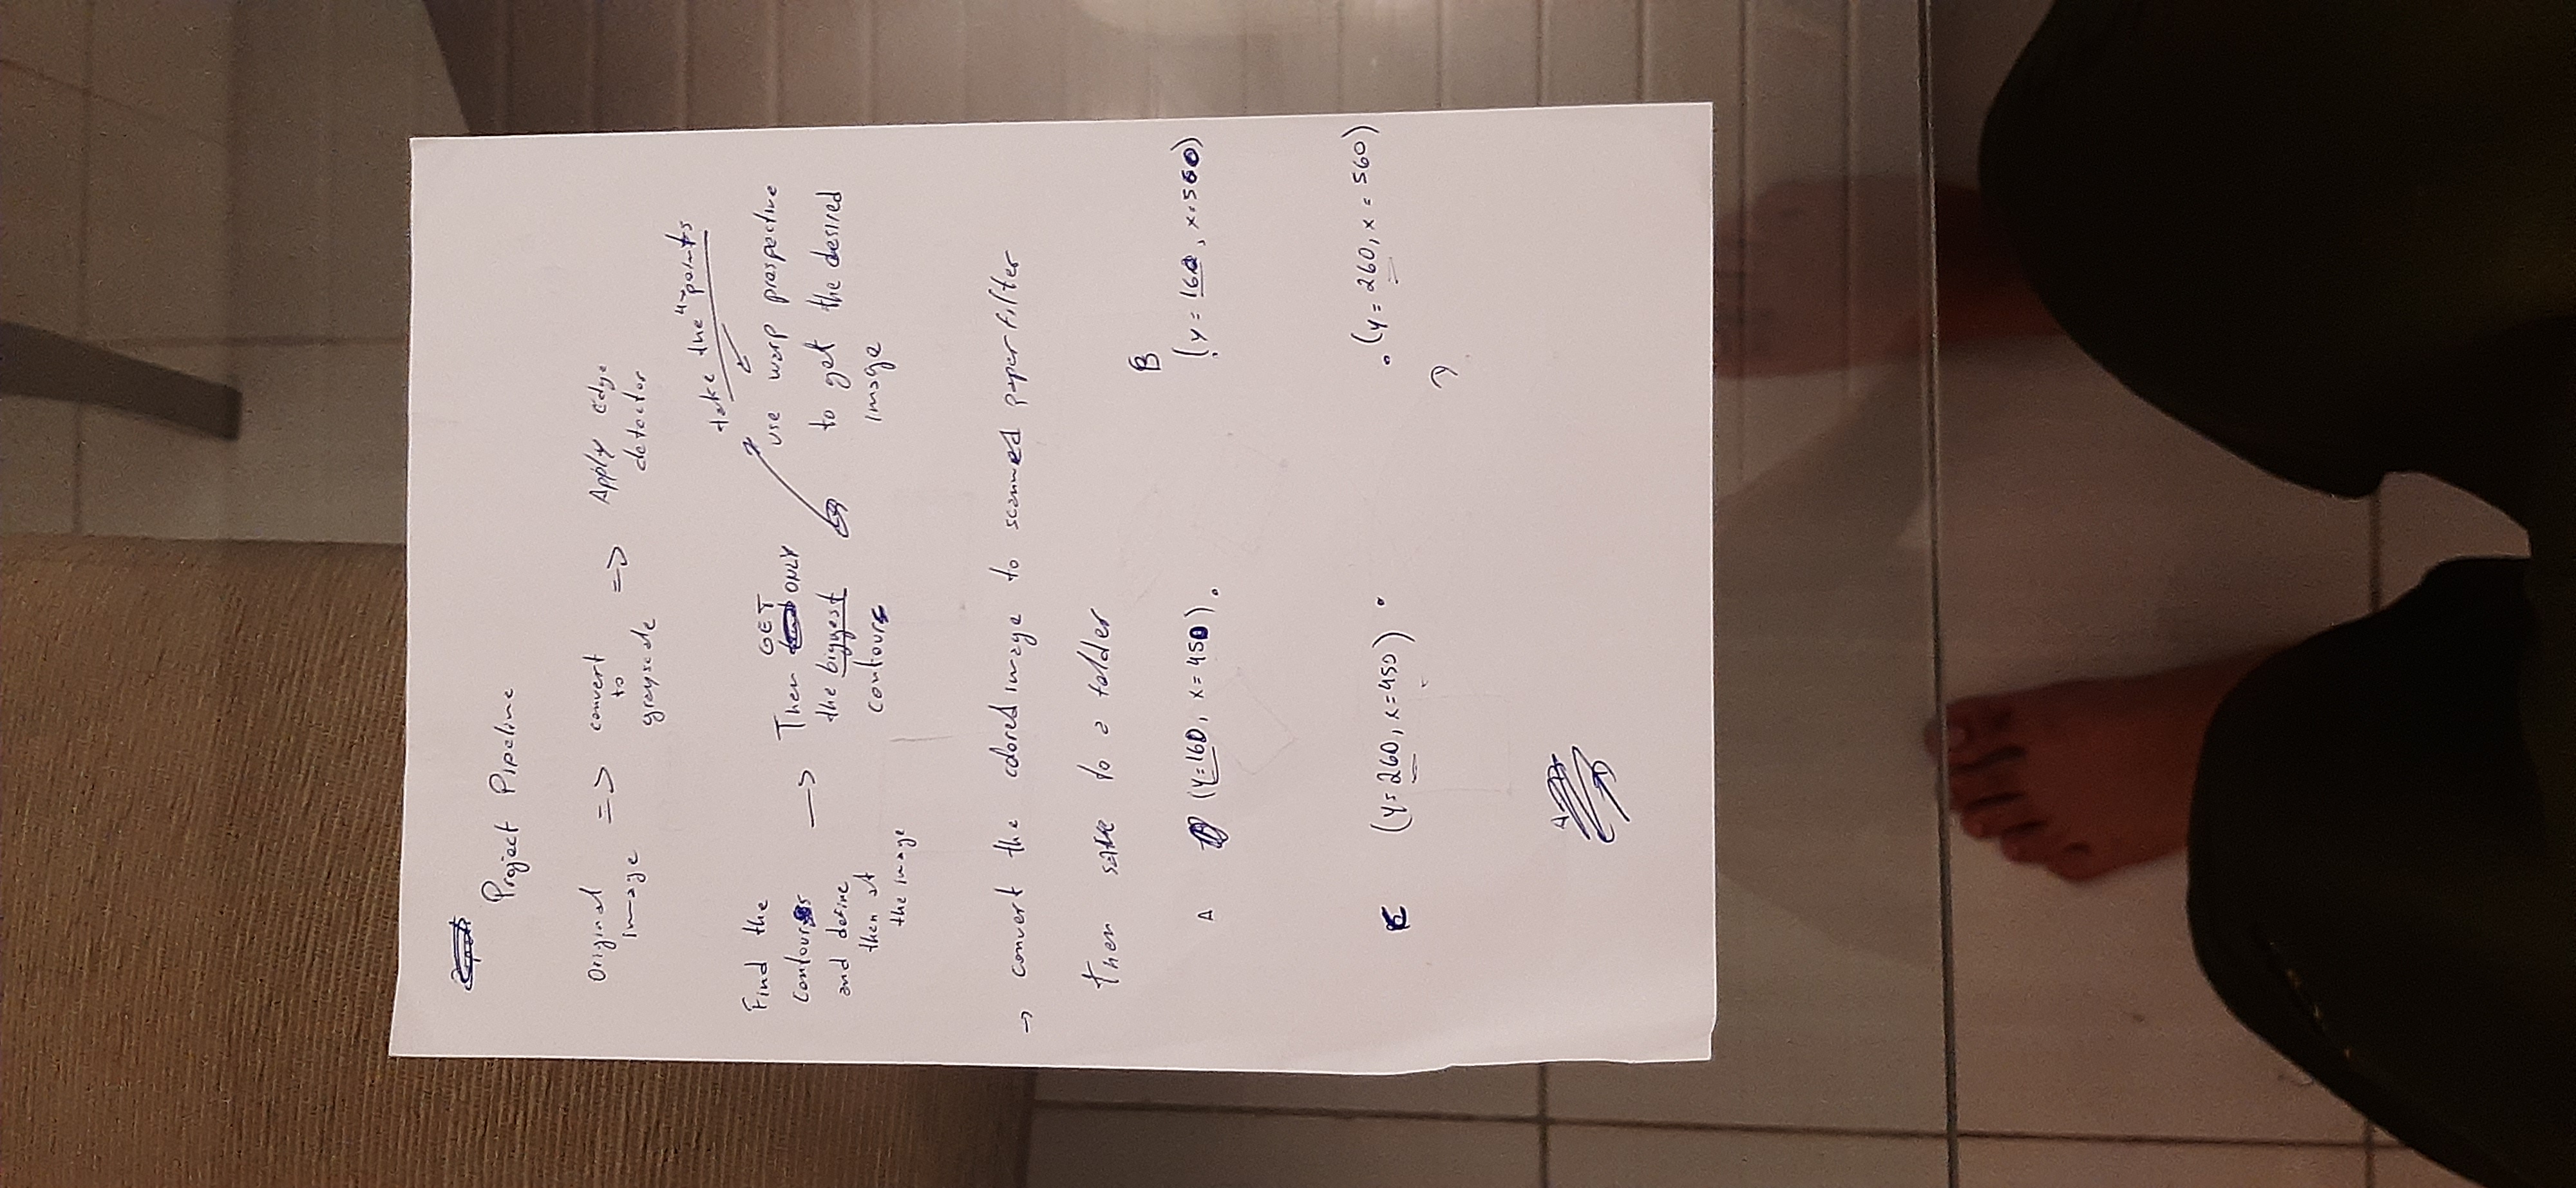 Project Pipeline
Original image => convert to grayscale => Apply Edge detector
take the 4 points
Find the contours and define then at the image -> Then GET ONLY the biggest contours
use warp prospective to get the desired image
-> convert the colored image to scanned paper filter
Then save to a folder
A (y=160, x=450) .
B
(y=160, x=560)
C (y=260, x=450) .
. (y=260, x=560)
D